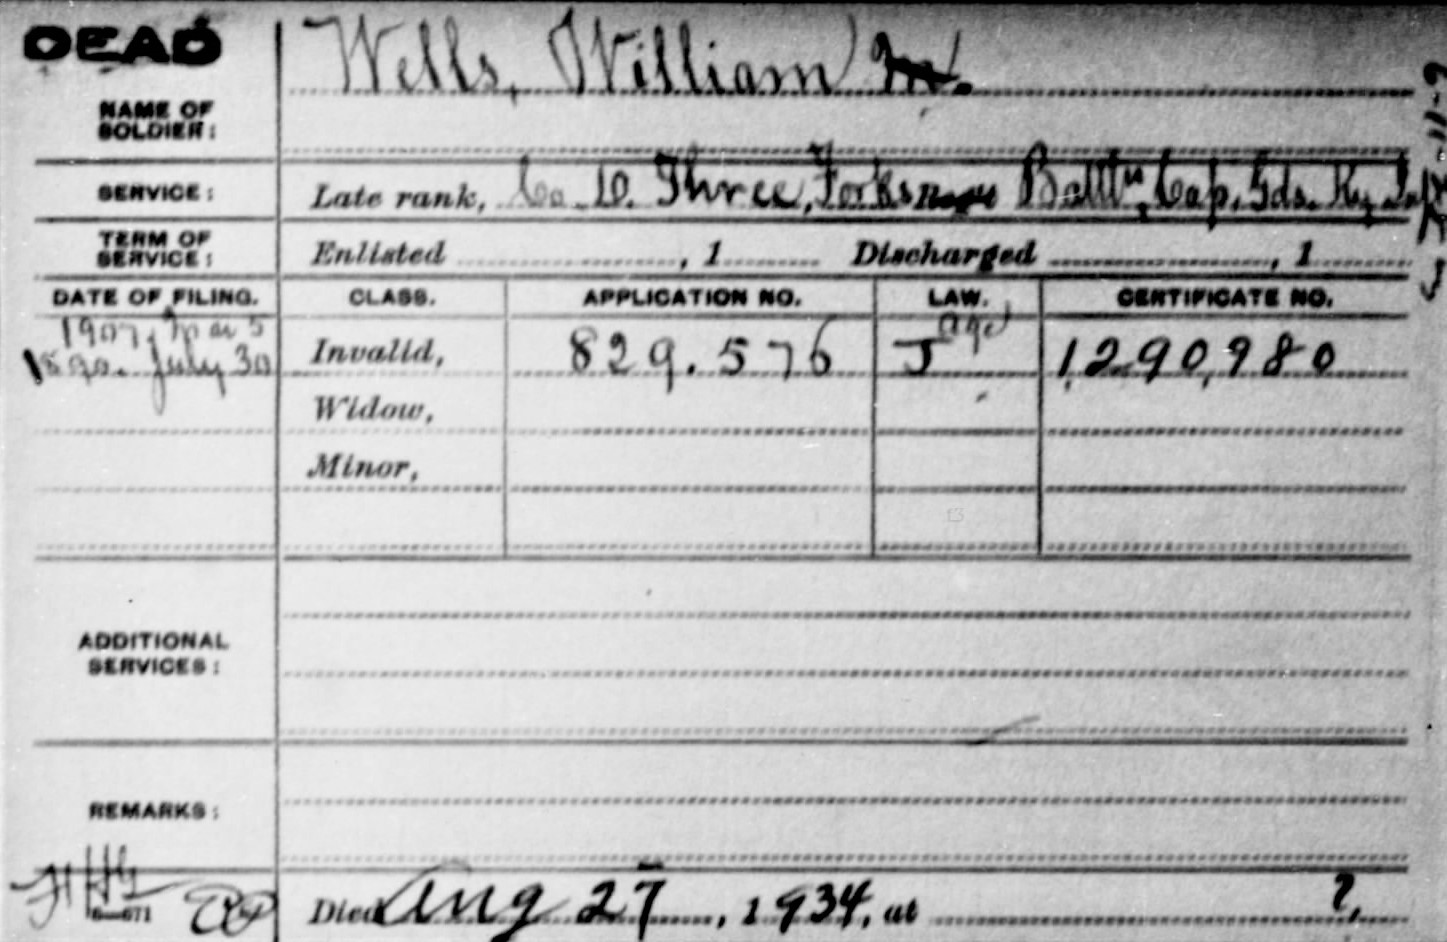 DEAD
Wells, William M.
NAME OF
SOLDIER:
SERVICE: Late rank, Co. D. Three Forks Battn, Cap. Gds. Ky. Inf
TERM OF
SERVICE: Enlisted , 1 Discharged , 1
DATE OF FILING. CLASS. APPLICATION NO. LAW. CERTIFICATE NO.
1907, Mar 5 age
1890. July 30 Invalid, 829.576 J 1,290,980
Widow,
Minor,
ADDITIONAL
SERVICES:
REMARKS:
Died Aug 27, 1934, at ?,